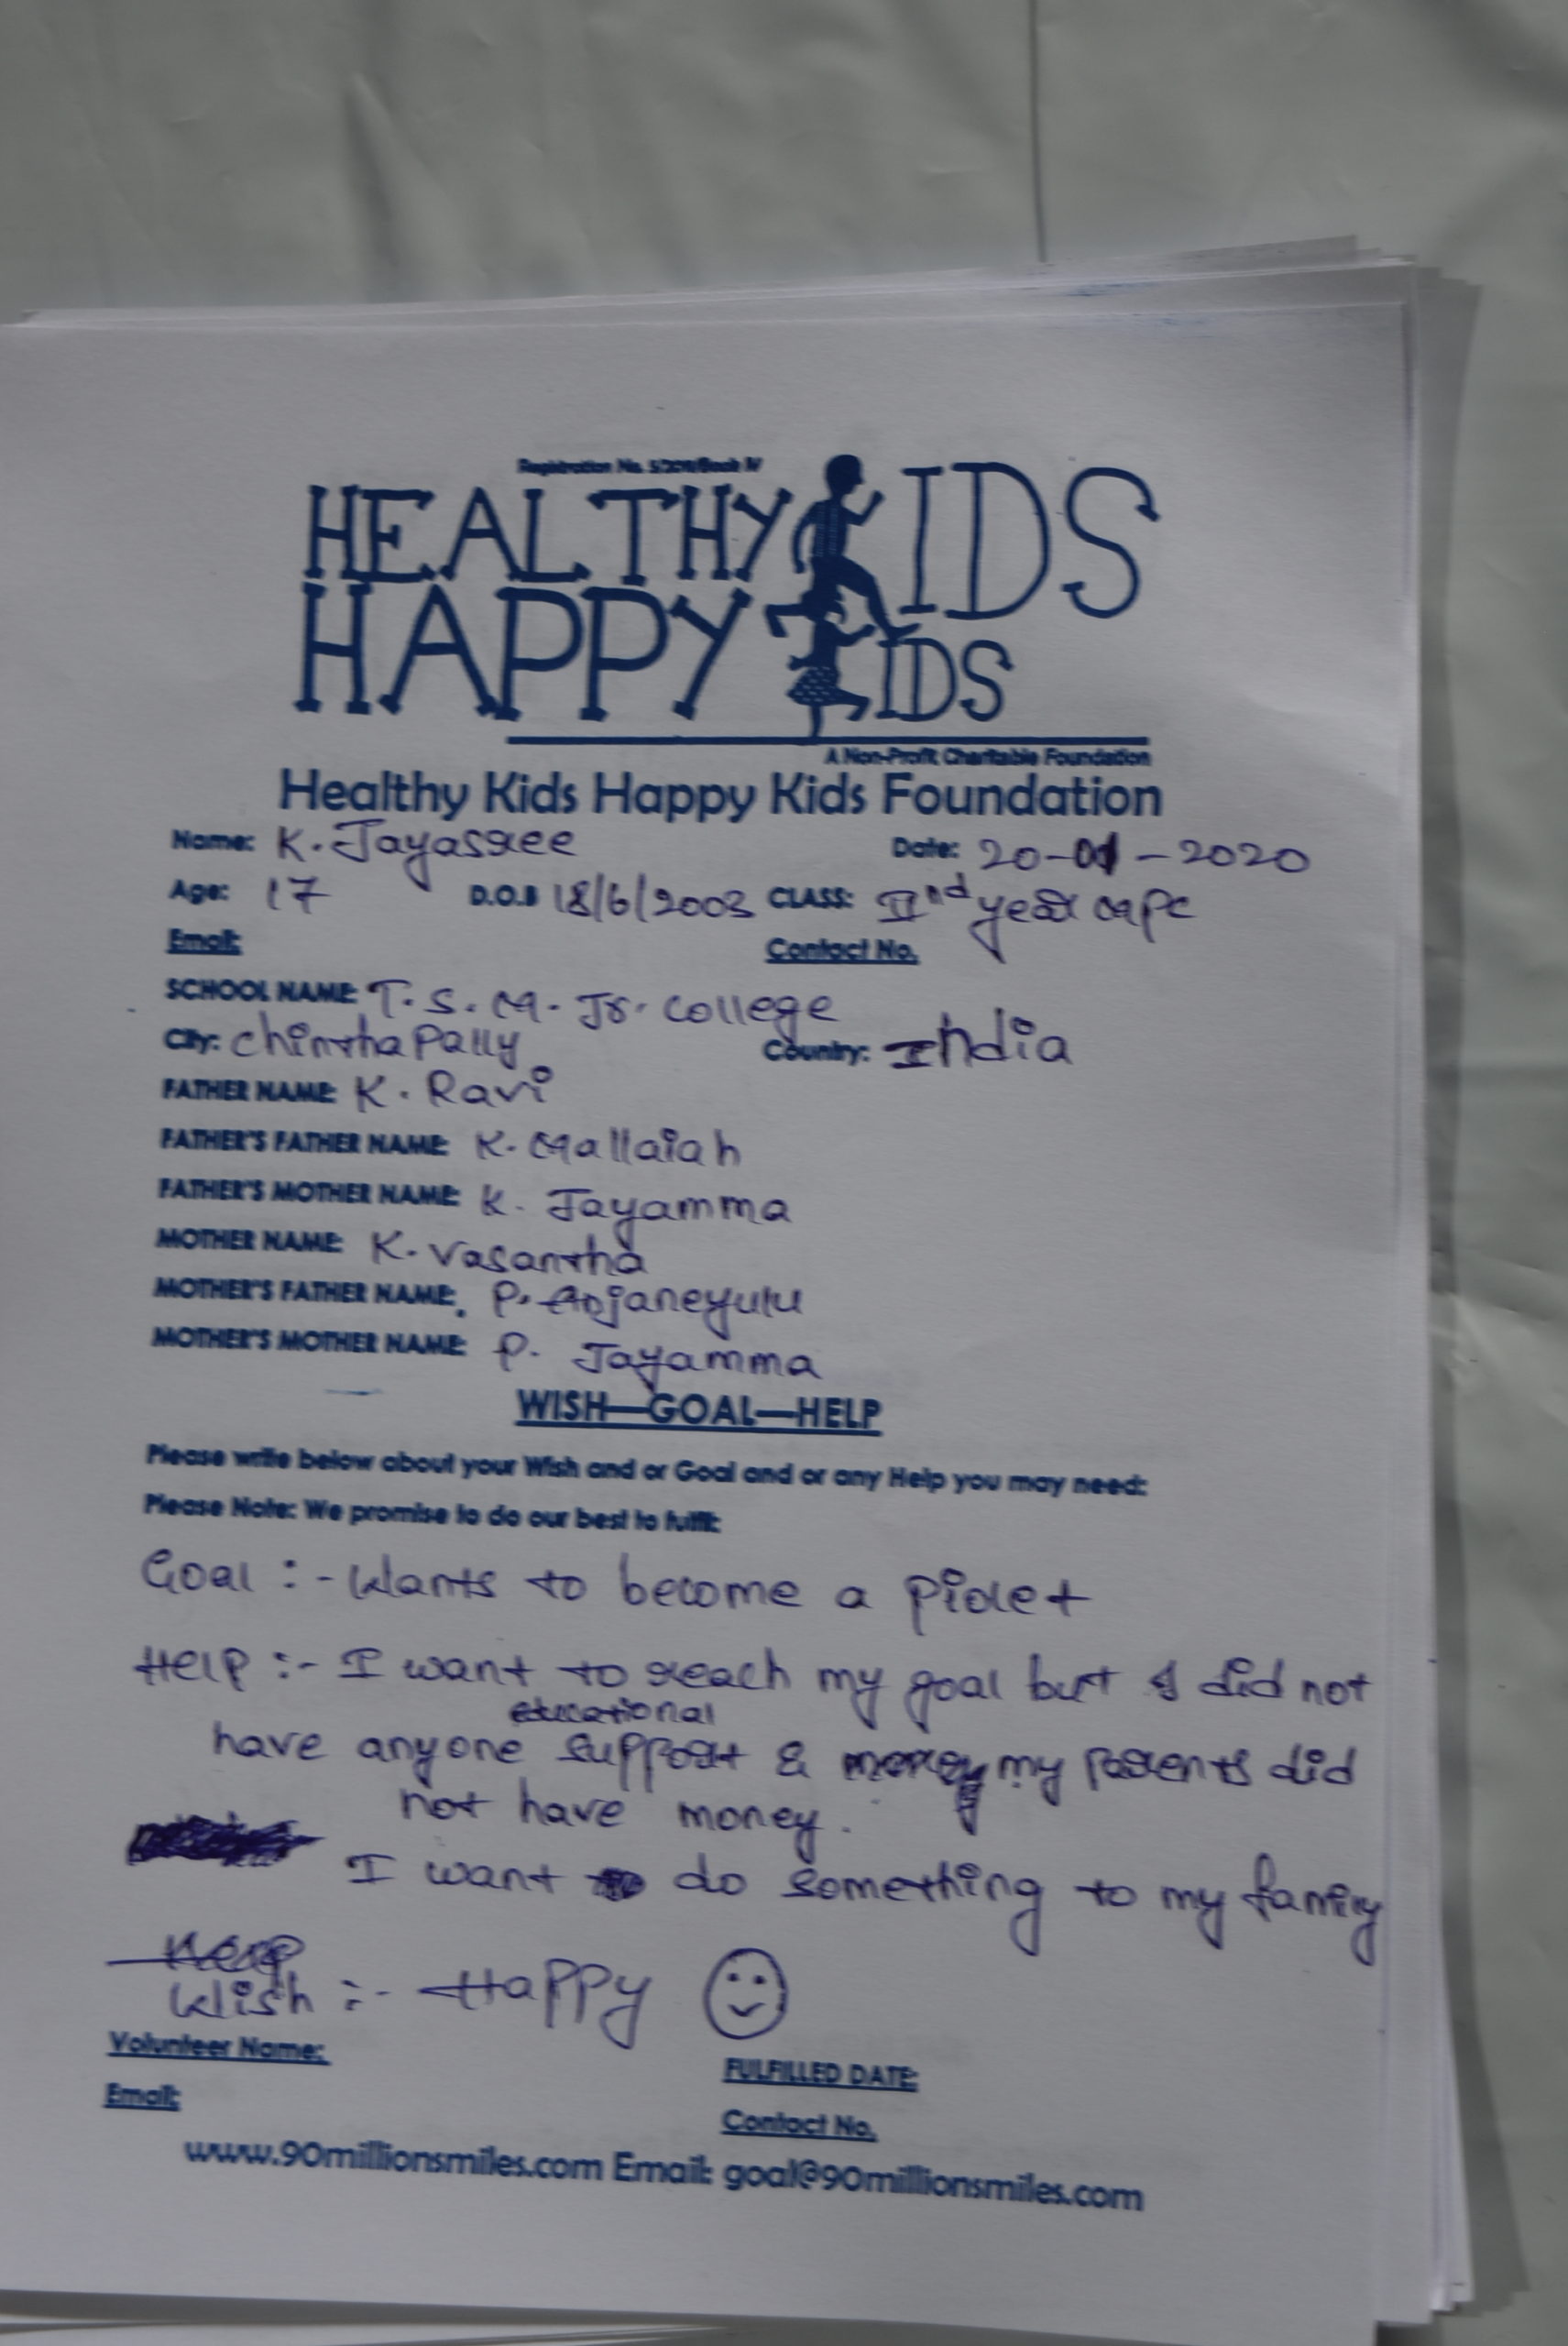 Registration No. 5/2011/Book IV
HEALTHY KIDS
HAPPY KIDS
A Non-Profit Charitable Foundation
Healthy Kids Happy Kids Foundation
Name: K. Jayasree Date: 20-01-2020
Age: 17 D.O.B 18/6/2003 CLASS: IInd year MPC
Email: Contact No.
SCHOOL NAME: T.S.M. Jr. College
City: chintha Pally Country: India
FATHER NAME: K. Ravi
FATHER'S FATHER NAME: K. Mallaiah
FATHER'S MOTHER NAME: K. Jayamma
MOTHER NAME: K. Vasantha
MOTHER'S FATHER NAME: P. Anjaneyulu
MOTHER'S MOTHER NAME: P. Jayamma
WISH—GOAL—HELP
Please write below about your Wish and or Goal and or any Help you may need:
Please Note: We promise to do our best to fulfil:
Goal :- Wants to become a
Help :- I want to reach my goal but I did not
educational
have anyone support & money my parents did
not have money.
I want to do something to my family
Wish :- Happy ☺
Volunteer Name: FULFILLED DATE:
Email: Contact No.
www.90millionsmiles.com Email: goal@90millionsmiles.com